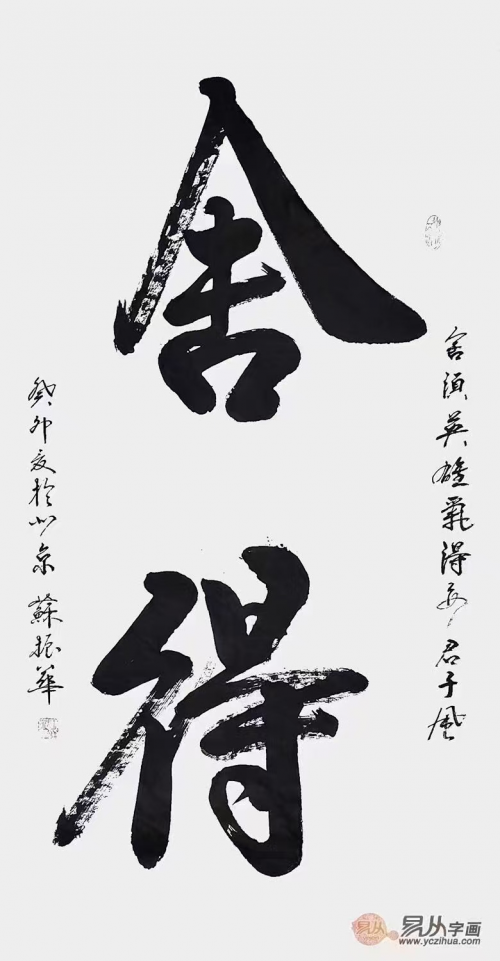 舍得
舍須英雄氣得要君子風
癸卯夏於北京 蘇振華
易从字画
www.yczihua.com